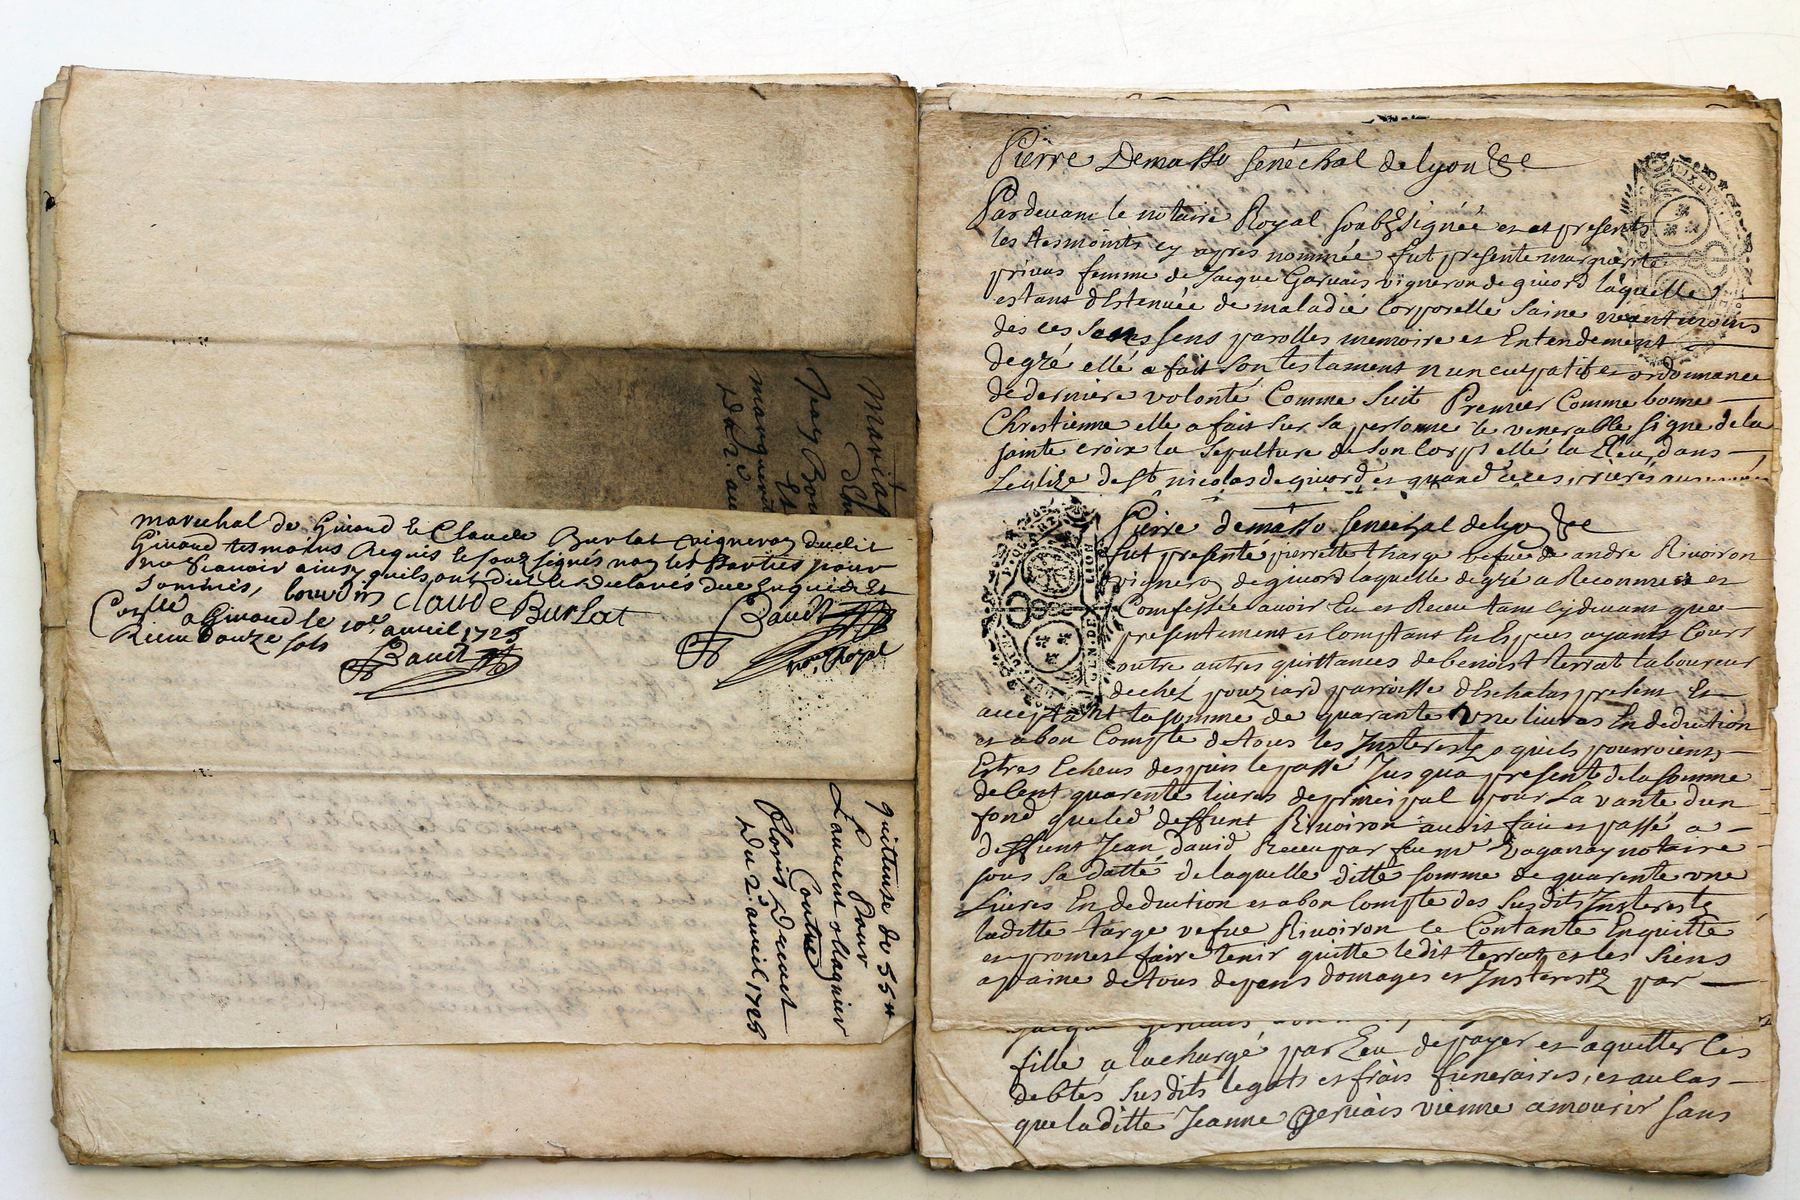 mariag
Jean Bou
Et
marguerit
marechal de Givord et Claude Burlat vigneron dudit
Givord tesmoins Requis et soubsignés non les Parties pour
ne sçavoir ainsy quils ont dict et declarés de ce Enquis Et
sommés, bouvdin Claude Burlat
Con.lle a Givord le 10e auril 1725
Receu douze sols
Baudt
Baudt
nore Royal
quittense de 55 tt
Pour
Laurent olagnier
Contre
Cloris Ducret
Du 2e auril 1725
Pierre Demasso senechal de lyon &c
Pardeuant le notaire Royal soubsignéé et et presents
les tesmoints cy apres nommée fut presente marguerite
privas femme de Jacque Garuais vigneron de giuord laquelle
estant detenuée de maladie Corporelle saine neantmoins
des ces sens parolles memoire et Entendement
de gré ellé a fait son testament nuncupatif et ordonnance
de derniere volonté Comme suit Premier Comme bonne
Chrestienne elle a fait sur sa personne le venerable signe de la
sainte croix la sepulture de son Corps ellé la Eleu dans
Leglize de st nicolas de giuord et quand
Pierre demasso senechal de lyon &c
fut presenté pierrette tharge vefue de andre Riuoiron
vigneron de giuord laquelle de gré a Reconnue et
Confessée auoir Eu et Receu tant cy deuant que
presentement et Comptant En Especes ayants Cours
outre autres quittances de benoist terrat laboureur
de chéz pouziard parroisse dEschalas present Et
acceptant la somme de quarante vne liures En deduction
et a bon Compte de tous les Insterests quils pourroient
Estres Echeus despuis le passé Jusqua presente de la somme
de Cent quarente liures de principal pour La vante dun
fond que led deffunt Riuoiron auoit fait et passé a
deffunt Jean dauid Receu par feu mr Vaganay notaire
sous sa datté de laquelle ditte somme de quarente vne
Liures En deduction et a bon Compte des susdits Insterests
laditte targe vefue Riuoiron se Contante En quitte
et promet faire tenir quitte ledit terrat et les siens
a paine de tous depens domages et Insterests par
fille a la chargé par Eux de payer et aquitter les
debtes susdits legats et frais funeraires, et au cas
que laditte Jeanne Geruais vienne a mourir sans